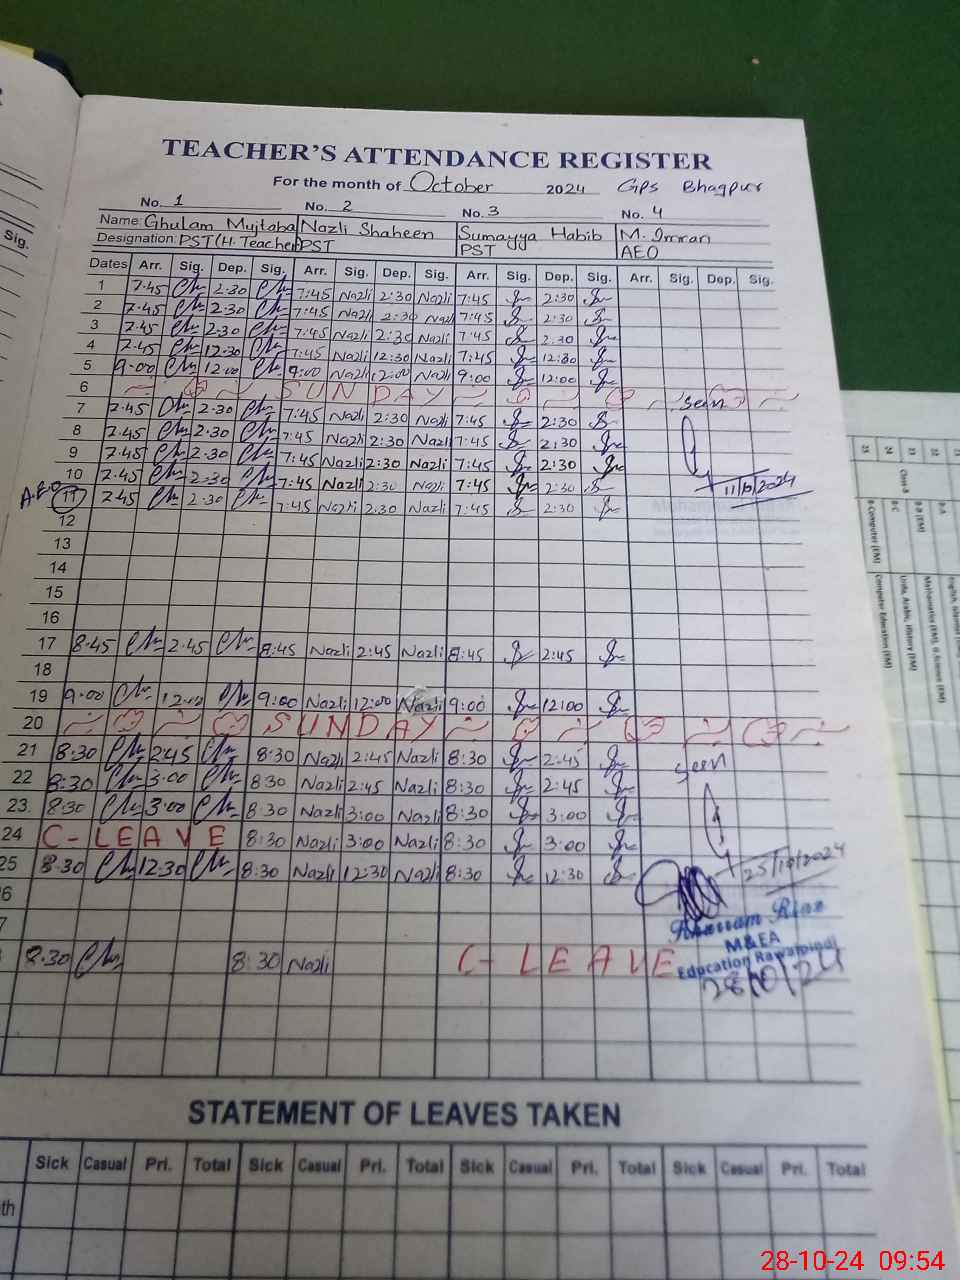 TEACHER'S ATTENDANCE REGISTER
For the month of October 2024 GPS Bhagpur
No. 1 No. 2 No. 3 No. 4
Name: Ghulam Mujtaba Nazli Shaheen Sumayya Habib M. Imran
Designation: PST (H. Teacher) PST PST AEO
Dates Arr. Sig. Dep. Sig. Arr. Sig. Dep. Sig. Arr. Sig. Dep. Sig. Arr. Sig. Dep. Sig.
1 7.45 2.30 7:45 Nazli 2:30 Nazli 7:45 2:30
2 7.45 2.30 7:45 Nazli 2:30 Nazli 7:45 2:30
3 7.45 2.30 7:45 Nazli 2:30 Nazli 7:45 2:30
4 7.45 12.30 7:45 Nazli 12:30 Nazli 7:45 12:30
5 9.00 12.00 9:00 Nazli 12:00 Nazli 9:00 12:00
6 SUNDAY
7 7.45 2.30 7:45 Nazli 2:30 Nazli 7:45 2:30 Seen
8 7.45 2.30 7:45 Nazli 2:30 Nazli 7:45 2:30
9 7.45 2.30 7:45 Nazli 2:30 Nazli 7:45 2:30
10 7.45 2.30 7:45 Nazli 2:30 Nazli 7:45 2:30 11/10/2024
A.E.O 11 7.45 2.30 7:45 Nazli 2:30 Nazli 7:45 2:30
12
13
14
15
16
17 8.45 2.45 8:45 Nazli 2:45 Nazli 8:45 2:45
18
19 9.00 12.00 9:00 Nazli 12:00 Nazli 9:00 12:00
20 SUNDAY
21 8.30 2.45 8:30 Nazli 2:45 Nazli 8:30 2:45 Seen
22 8:30 3.00 8:30 Nazli 2:45 Nazli 8:30 2:45
23 8.30 3.00 8:30 Nazli 3:00 Nazli 8:30 3:00
24 C-LEAVE 8:30 Nazli 3:00 Nazli 8:30 3:00
25 8.30 12.30 8:30 Nazli 12:30 Nazli 8:30 12:30 25/10/2024
6
7
8.30 8:30 Nazli C-LEAVE
Khurram Riaz
M&EA
Education Rawalpindi
28/10/24
STATEMENT OF LEAVES TAKEN
Sick Casual Pri. Total Sick Casual Pri. Total Sick Casual Pri. Total Sick Casual Pri. Total
th
Sig.
28-10-24 09:54